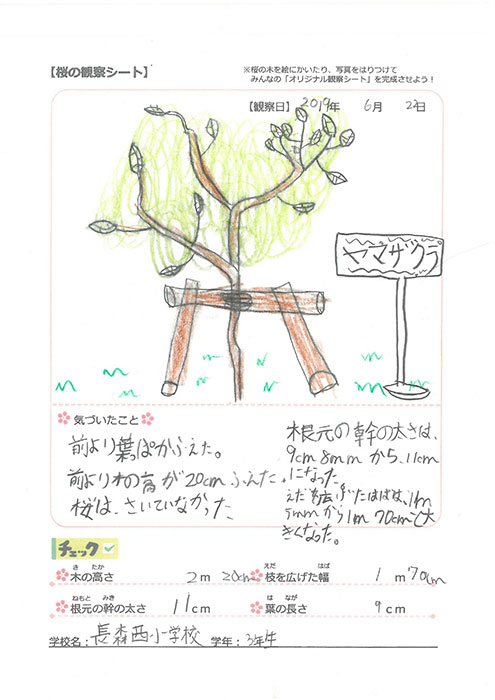 【桜の観察シート】
※桜の木を絵にかいたり、写真をはりつけて
みんなの「オリジナル観察シート」を完成させよう！
【観察日】2019年 6月 22日
ヤマザクラ
気づいたこと
前より葉っぱがふえた。
前より木の高が20cmふえた。
桜は、さいていなかった
根元の幹の太さは、
9cm 8mmから、11cm
になった。
きくなった。
チェック
木の高さ 2m 20cm
枝を広げた幅 1m70cm
根元の幹の太さ 11cm
葉の長さ 9cm
学校名：長森西小学校 学年：3年生